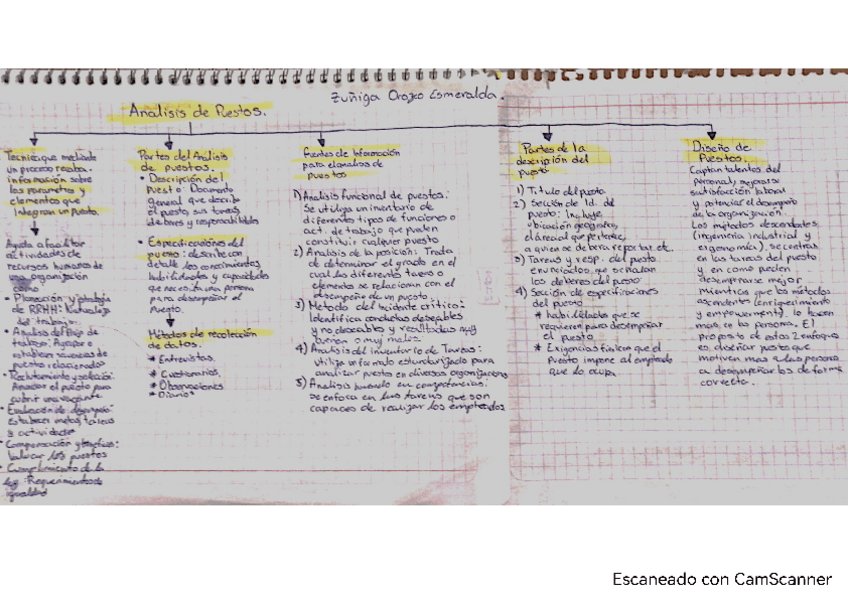 Zuñiga Orozco Esmeralda.
Analisis de Puestos.
Tecnica que mediante
un proceso recaba
información sobre
los parametros y
elementos que
integran un puesto.
Ayuda a facilitar
actividades de
recursos humanos de
una organización
como
• Planeación y estrategia
de RRHH: Naturaleza
del trabajo.
trabajo: Agrupar e
puestos relacionados
• Reclutamiento y selección:
Anunciar el puesto para
cubrir una vacante
• Evaluación de desempeño:
Establecer metas, tareas
y actividades
Valuar los puestos
• Cumplimiento de la
ley: Requerimientos de
igualdad
Partes del Analisis
de puestos.
• Descripción del
Puesto: Documento
general que describe
el puesto, sus tareas,
deberes y responsabilidades
• Especificaciones del
puesto: describe con
detalle los conocimientos
habilidades y capacidades
que necesita una persona
para desempeñar el
Puesto.
Métodos de recolección
de datos:
* Entrevistas
* Cuestionarios
* Observaciones
* Diario
Fuentes de Información
para el analisis de
puestos
1) Analisis funcional de puestos:
Se utiliza un inventario de
diferentes tipos de funciones o
act. de trabajo que pueden
constituir cualquier puesto
2) Analisis de la posición: Trata
de determinar el grado en el
cual los diferentes tareas o
elementos se relacionan con el
desempeño de un puesto.
3) Metodo del incidente critico:
Identifica conductas deseables
y no deseables y resultados muy
buenos o muy malos.
4) Analisis del inventario de Tareas:
utiliza un formato estandarizado para
analizar puestos en diversas organizaciones
5) Analisis basado en competencias:
se enfoca en las tareas que son
capaces de realizar los empleados
Partes de la
descripción del
puesto
1) Titulo del puesto
2) Sección de Id. de
puesto: Incluye
ubicación geografica,
el area al que pertenece,
a quien se debera reportar etc.
3) Tareas y resp. del puesto
enunciados que señalan
los deberes del puesto
4) Sección de especificaciones
del puesto
* habilidades que se
requieren para desempeñar
el puesto
* Exigencias fisicas que el
puesto impone al empleado
que lo ocupa
Diseño de
Puestos.
Captan talentos del
personal, mejorar se
satisfacción laboral
y potenciar el desempeño
de la organización.
Los métodos descendentes
(ingenieria industrial y
ergonomía), se centran
en las tareas del puesto
y en como pueden
desempeñarse mejor
Mientras que los métodos
ascendentes (enriquecimiento
y empowerment), lo hacen
mas en la persona. El
proposito de estos 2 enfoques
es diseñar puestos que
motiven mas a las personas
a desempeñarlos de forma
correcta.
Escaneado con CamScanner